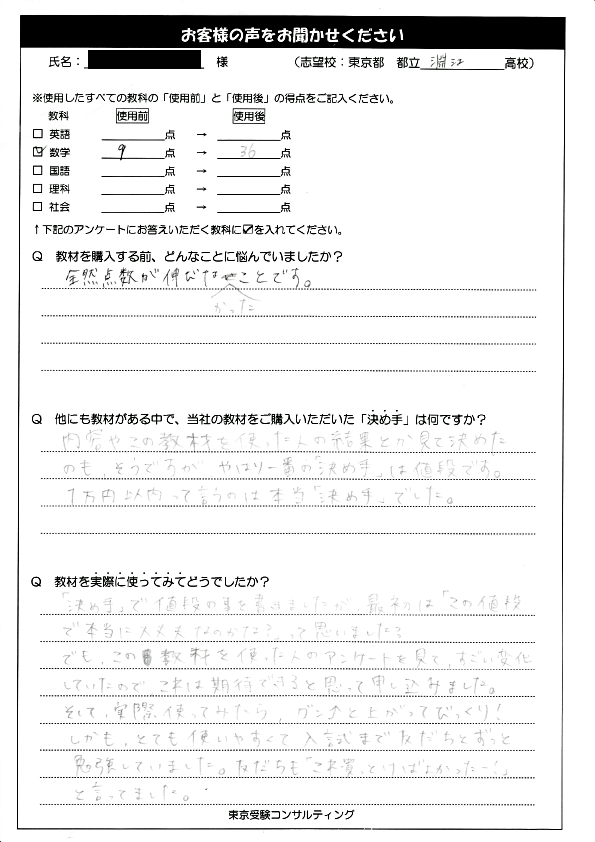 お客様の声をお聞かせください
氏名： 様 （志望校：東京都 都立 淵江 高校）
※使用したすべての教科の「使用前」と「使用後」の得点をご記入ください。
教科 使用前 使用後
□ 英語 点 → 点
☑ 数学 9 点 → 36 点
□ 国語 点 → 点
□ 理科 点 → 点
□ 社会 点 → 点
↑下記のアンケートにお答えいただく教科に☑を入れてください。
Q 教材を購入する前、どんなことに悩んでいましたか？
全然点数が伸びな ことです。
かった
Q 他にも教材がある中で、当社の教材をご購入いただいた「決め手」は何ですか？
内容やこの教材を使った人の結果とか見て決めた
のも、そうですが やはり一番の「決め手」は値段です。
1万円以内って言うのは本当「決め手」でした。
Q 教材を実際に使ってみてどうでしたか？
「決め手」で値段の事を書きましたが、最初は「この値段
で本当に大丈夫なのかな？」って思いました？
でも、この教料を使った人のアンケートを見て、すごい変化
していたので、これは期待できると思って申し込みました。
そして、実際、使ってみたら、グン↗と上がってびっくり！
しかも、とても使いやすくて入試まで友だちとずっと
勉強していました。友だちも「これ買っとけばよかったー！」
と言ってました。
東京受験コンサルティング